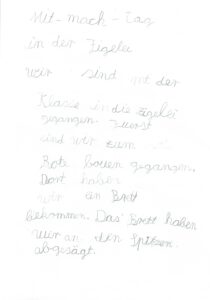 Mit-mach-Tag
in der Zigelei
wir sind mit der
Klasse in die Zigelei
gegangen. Zuerst
sind wir zum
Bote bauen gegangen.
Dort haben
wir ein Brett
bekommen. Das Brett haben
wir an den Spitzen
abgesägt.